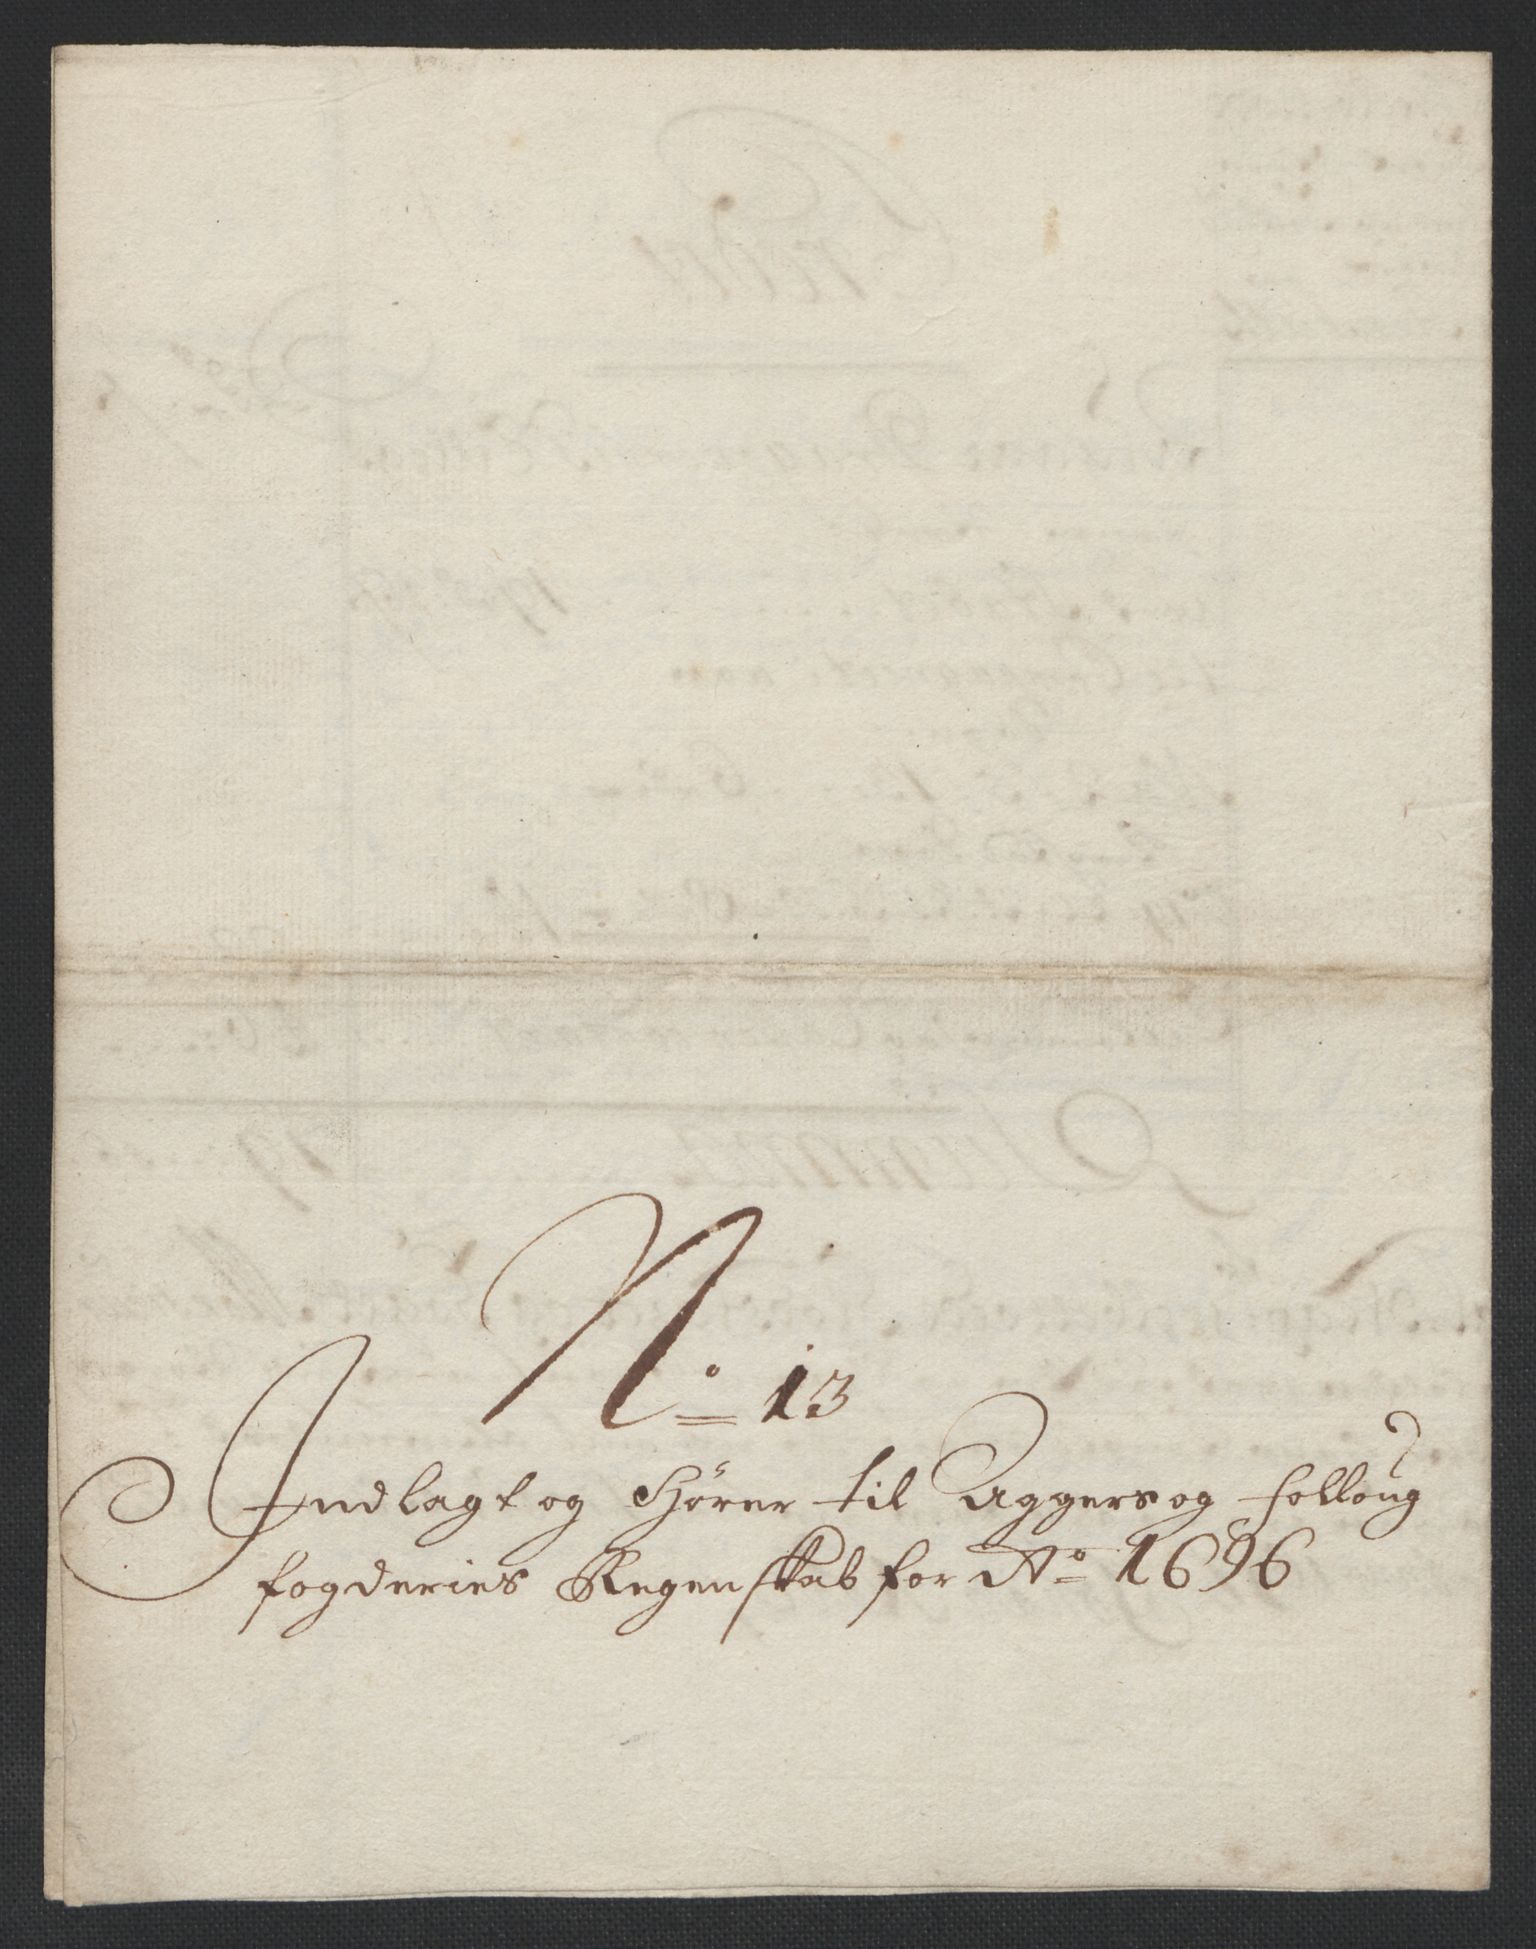 No 13
Indlagt og hører til Aggers og folloug
fogderies Regenskab for Ao 1696